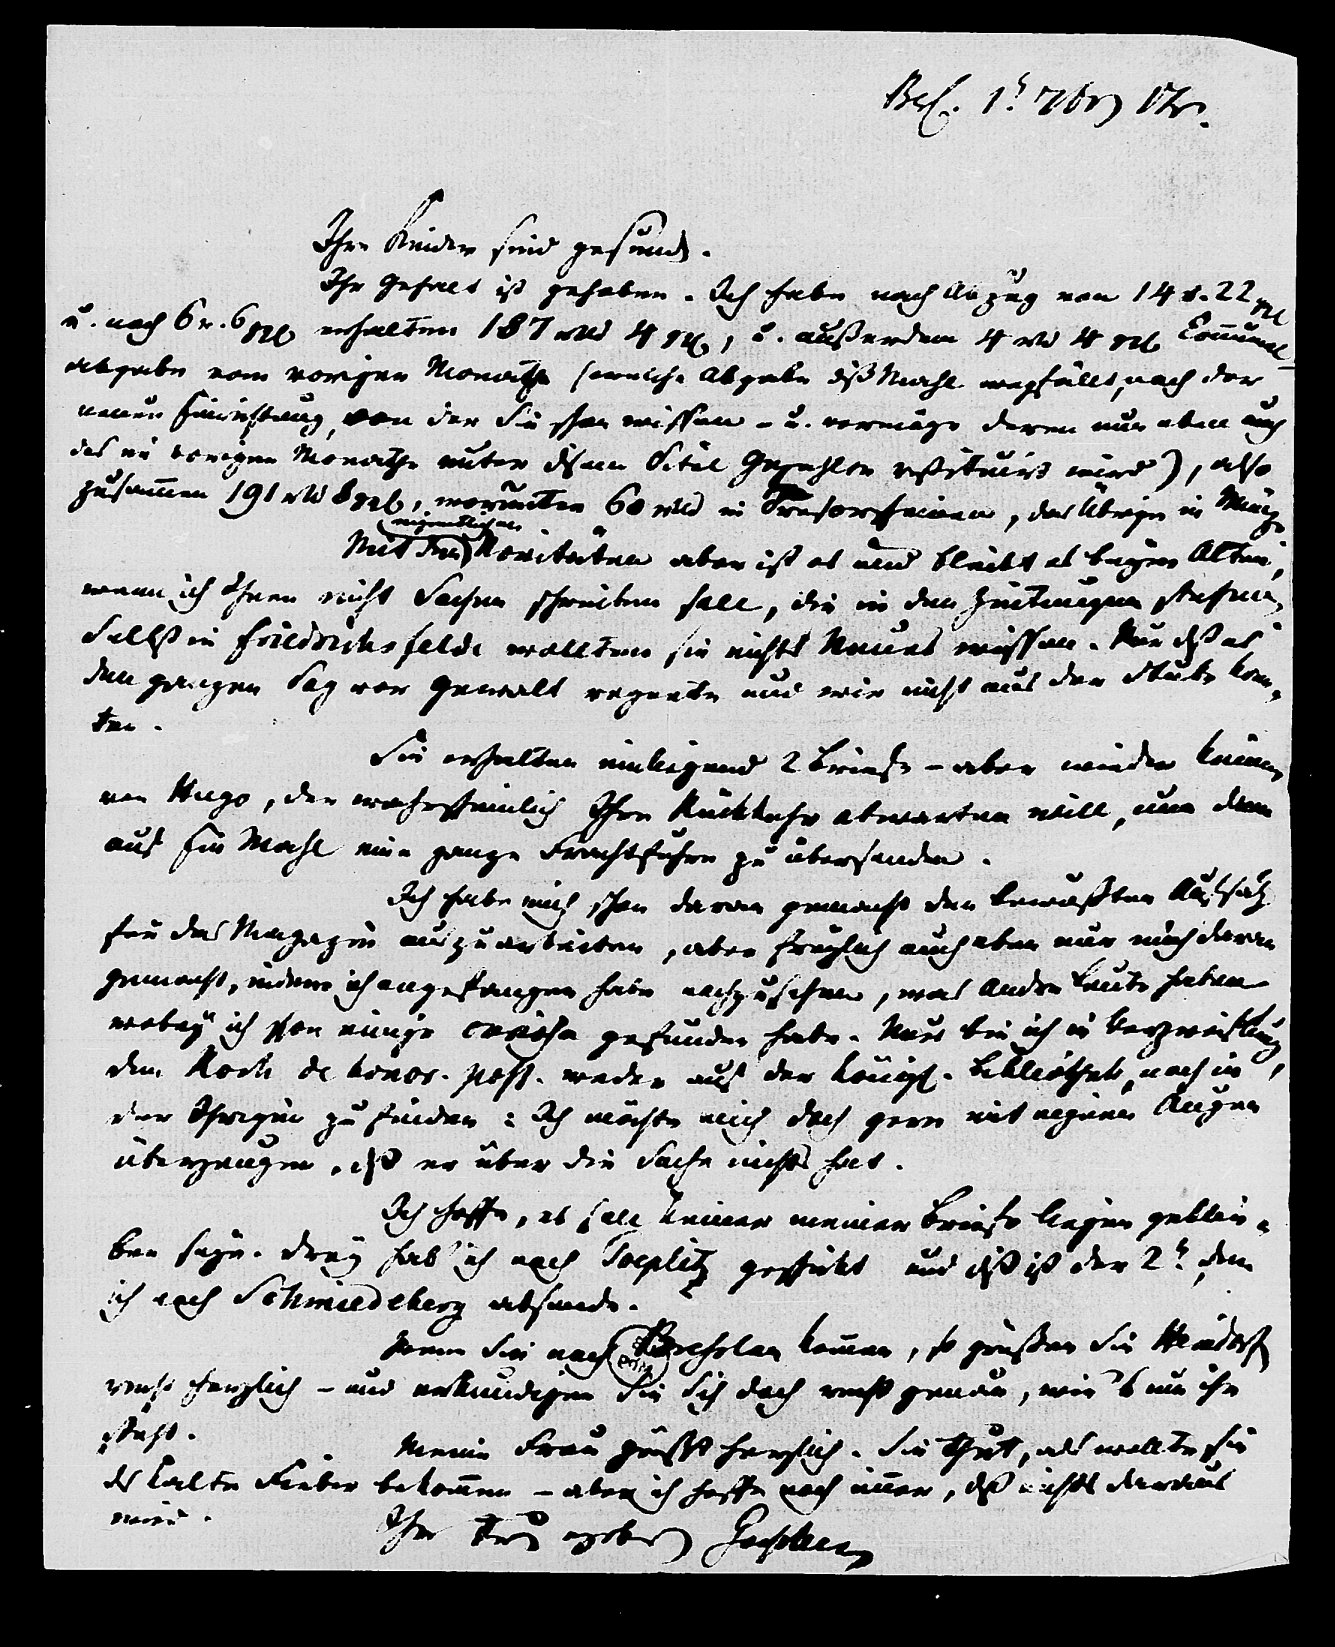 Berl. 1t. 7br 12.
Ihre Kinder sind gesund.
Ihr Gehalt ist gehoben. Ich habe nach Abzug von 14 r. 22 gr
u. noch 6 r. 6 gr erhalten 187 rth 4 gr, u. außerdem 4 rth 4 gr Communal-
abgabe vom vorigen Monathe (welche Abgabe dißMahl wegfällt, nach der
neuen Einrichtung, von der Sie schon wissen – u. vermöge deren nun eben auch
das im vorigen Monathe unter disem Titel Gezahlte restituirt wird), also
zusammen 191 rth 8 gr, worunter 60 rth in Tresorscheinen, das Übrige in Münze
Mit den eigentlichen Novitäten aber ist es und bleibt es beym Alten,
wenn ich Ihnen nicht Sachen schreiben soll, die in den Zeitungen stehen.
Selbst in Friedrichsfelde wollten sie nichts Neues wissen. Nur dß es
den ganzen Tag vor Gewalt regnete und wir nicht aus der Stube kon-
ten.
Sie erhalten einliegend 2 Briefe – aber wieder keinen
von Hugo, der wahrscheinlich Ihre Rückkehr abwarten will, um dann
auf Ein Mahl eine ganze Frachtfuhre zu übersenden.
Ich habe mich schon daran gemacht den bewußten Aufsatz
für das Magazin auszuarbeiten, aber freylich auch eben nur mich daran
gemacht, indem ich angefangen habe nachzusehen, was andre Leute haben
wobey ich schon einige gefunden habe. Nur bin ich in Verzweiflung,
den Koch de bonor. poss. weder auf der Königl. Bibliothek, noch in
der Ihrigen zu finden: Ich möchte mich doch gern mit eignen Augen
überzeugen, dß er über die Sache nichts hat.
Ich hoffe, es soll keiner meiner Briefe liegen geblie-
ben seyn. Drey hab ich nach Toeplitz geschickt und diß ist der 2t, den
ich nach Schmiedeberg absende.
Wenn Sie nach Breslau kommen, so grüßen Sie Heindorf
recht herzlich – und erkundigen Sie Sich doch recht genau, wie's um ihn
steht.
Meine Frau grüßt herzlich. Sie thut, als wollte sie
das kalte Fieber bekommen – aber ich hoffe noch immer, dß nichts daraus
wird.
Ihr treu ergebner Goeschen